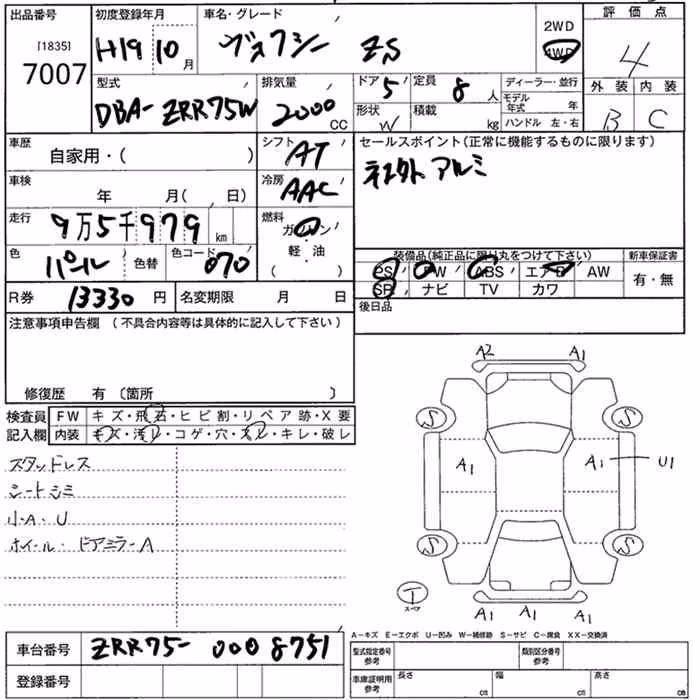 出品番号
[1835]
7007
初度登録年月
H19 10月
車名・グレード
ヴォクシー ZS
2WD
4WD
評価点
4
外装 内装
B C
型式
DBA-ZRR75W
排気量
2000 CC
ドア 5
定員 8 人
形状 W
積載 kg
ディーラー・並行
モデル年式 年
ハンドル 左・右
車歴
自家用・( )
シフト
AT
セールスポイント(正常に機能するものに限ります)
アルミ
車検
年 月( 、 日)
冷房
AAC
走行
9万5千979 km
燃料
ガソリン
軽・油
( )
色
パール
色替
色コード
070
装備品(純正品に限り丸をつけて下さい)
PS PW ABS エアB AW
SR ナビ TV カワ
新車保証書
有・無
R券 13330 円
名変期限 月 日
後日品
注意事項申告欄 (不具合内容等は具体的に記入して下さい)
修復歴 有 〔箇所 〕
検査員記入欄
FW キズ・飛石・ヒビ割・リペア跡・X要
内装 キズ・汚レ・コゲ・穴・スレ・キレ・破レ
スタッドレス
シートシミ
小A・U
ホイール・ドアミラーA
A2 A1
S S
A1 A1 U1
S S
T
スペア
A1 A1 A1
A-キズ E-エクボ U-凹み W-補修跡 S-サビ C-腐食 XX-交換済
車台番号 ZRR75-0008751
登録番号
型式指定番号参考
類別区分番号参考
車庫証明用参考
長さ cm
幅 cm
高さ cm